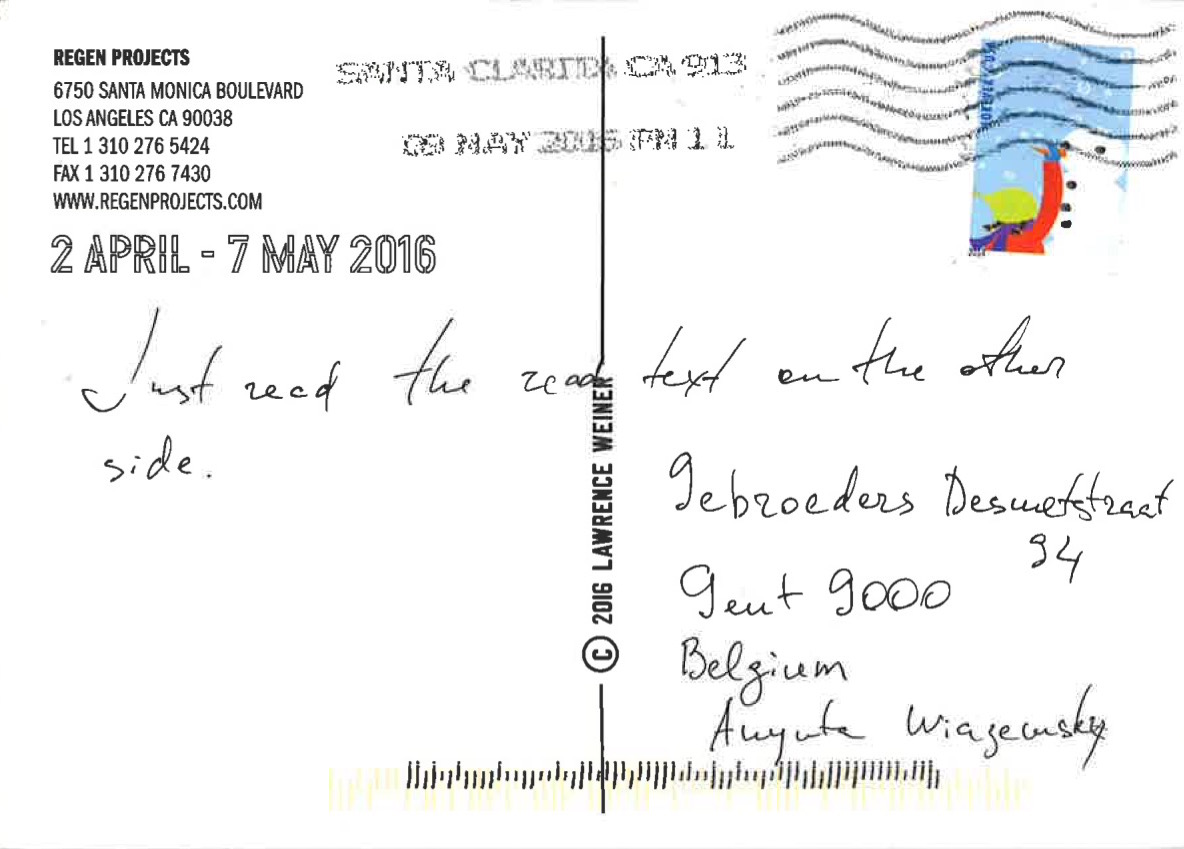 REGEN PROJECTS
6750 SANTA MONICA BOULEVARD
LOS ANGELES CA 90038
TEL 1 310 276 5424
FAX 1 310 276 7430
WWW.REGENPROJECTS.COM
2 APRIL - 7 MAY 2016
SANTA CLARITA CA 913
MAY 2016 PM 11
FOREVER USA
Just read the read text on the other
side.
© 2016 LAWRENCE WEINER
Gebroeders Desmetstraat
94
Gent 9000
Belgium
Wiazemsky